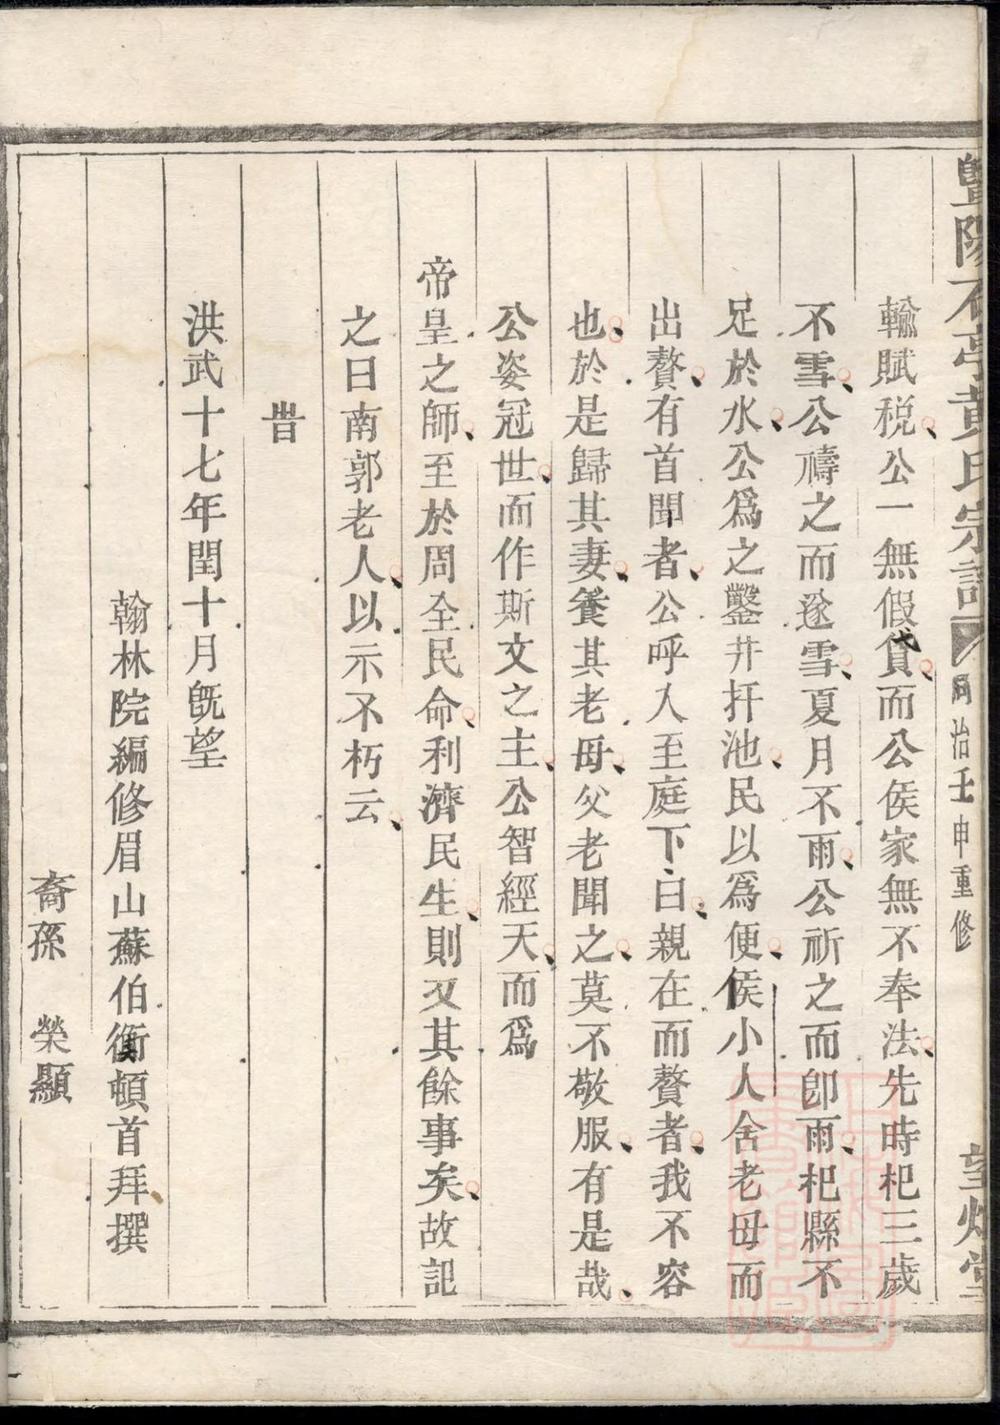 暨陽石亭黃氏宗譜
同治壬申重修
望烟堂
輸賦税公一無假貸而公侯家無不奉法先時杞三歲
不雪公禱之而遂雪夏月不雨公祈之而卽雨杞縣不
足於水公爲之鑿井扞池民以爲便侯小人舍老母而
出贅有首聞者公呼人至庭下白親在而贅者我不容
也於是歸其妻養其老母父老聞之莫不敬服有是哉
公姿冠世而作斯文之主公智經天而爲
帝皇之師至於周全民命利濟民生則又其餘事矣故記
之曰南郭老人以示不朽云
旹
洪武十七年閏十月旣望
翰林院編修眉山蘇伯衡頓首拜撰
裔孫　榮顯